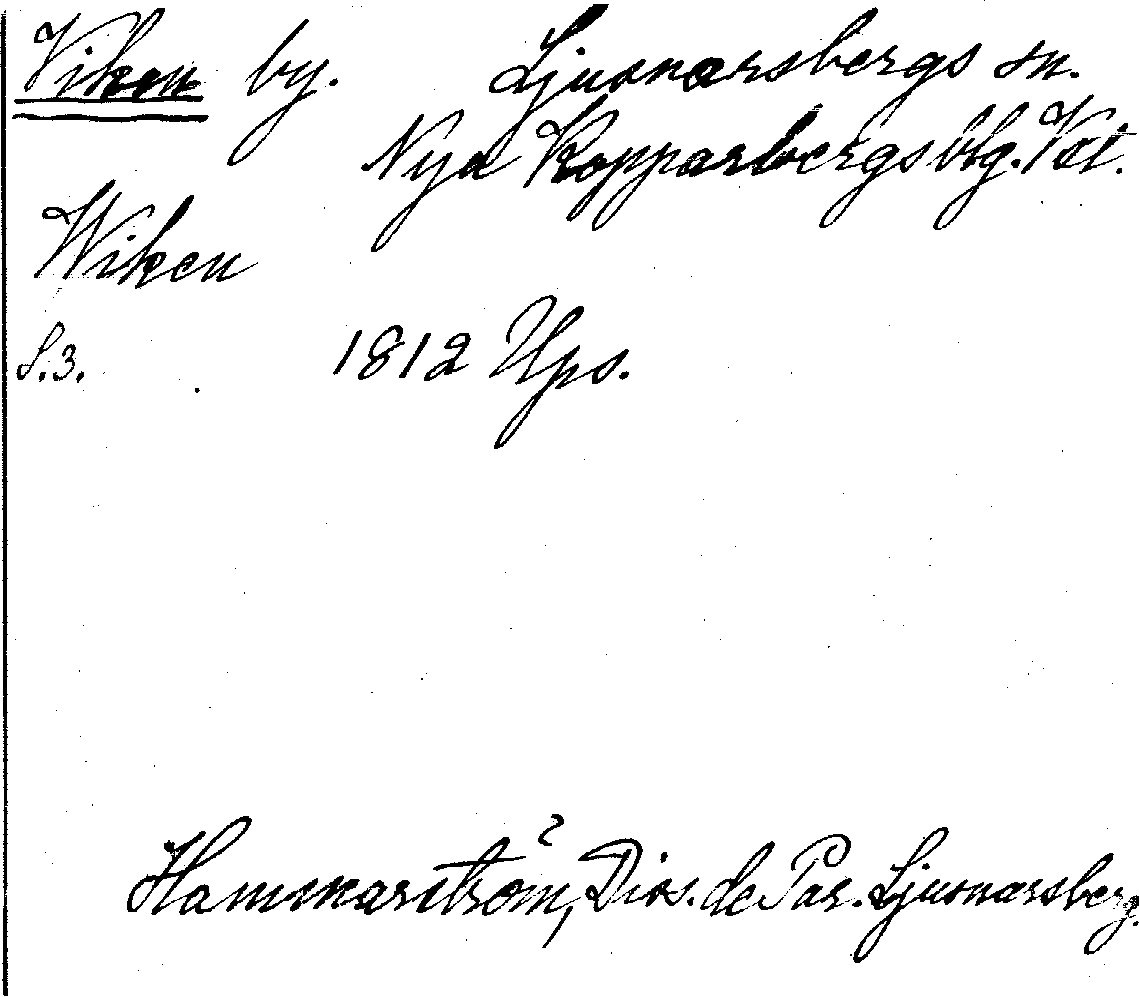 Viken by. Ljusnarsbergs sn.
Nya Kopparbergs blg. Vstm.
Wiken
S.3. 1812 Ups.
Hammarström, Diss. de Par. Ljusnarsberg.